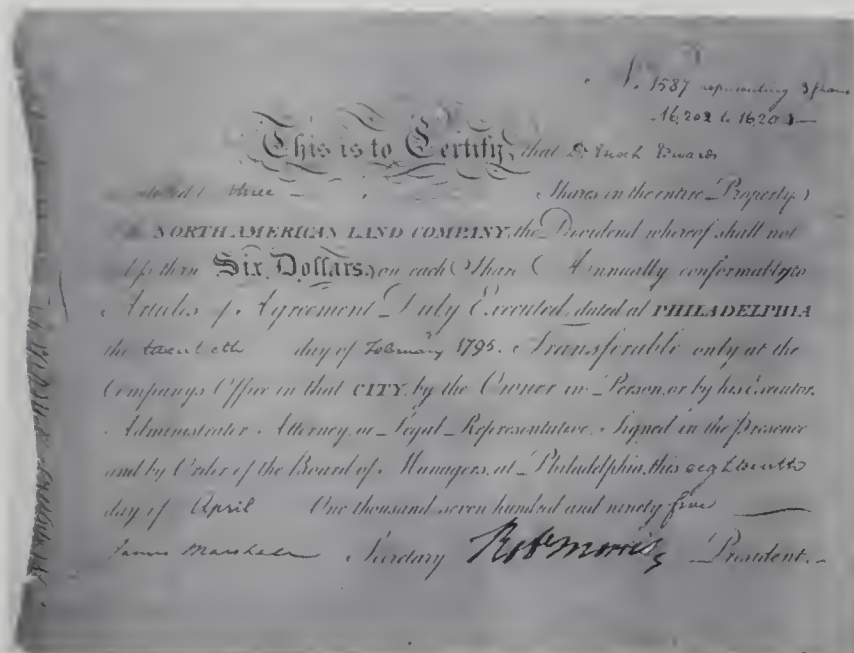 1587 representing 3 shares
16,202 to 16,204
This is to Certify, that Dr Enoch Edwards
is entitled to three Shares in the entire Property
of the NORTH AMERICAN LAND COMPANY, the Dividend whereof shall not
be less than Six Dollars, on each Share Annually conformably to
Articles of Agreement Duly Executed, dated at PHILADELPHIA
the twentieth day of February 1795. Transferable only at the
Companys Office in that CITY, by the Owner in Person, or by his Executor,
Administrator Attorney, or Legal Representative. Signed in the Presence
and by Order of the Board of Managers, at Philadelphia, this eighteenth
day of April One thousand seven hundred and ninety five
James Marshall Secretary Robt Morris President.